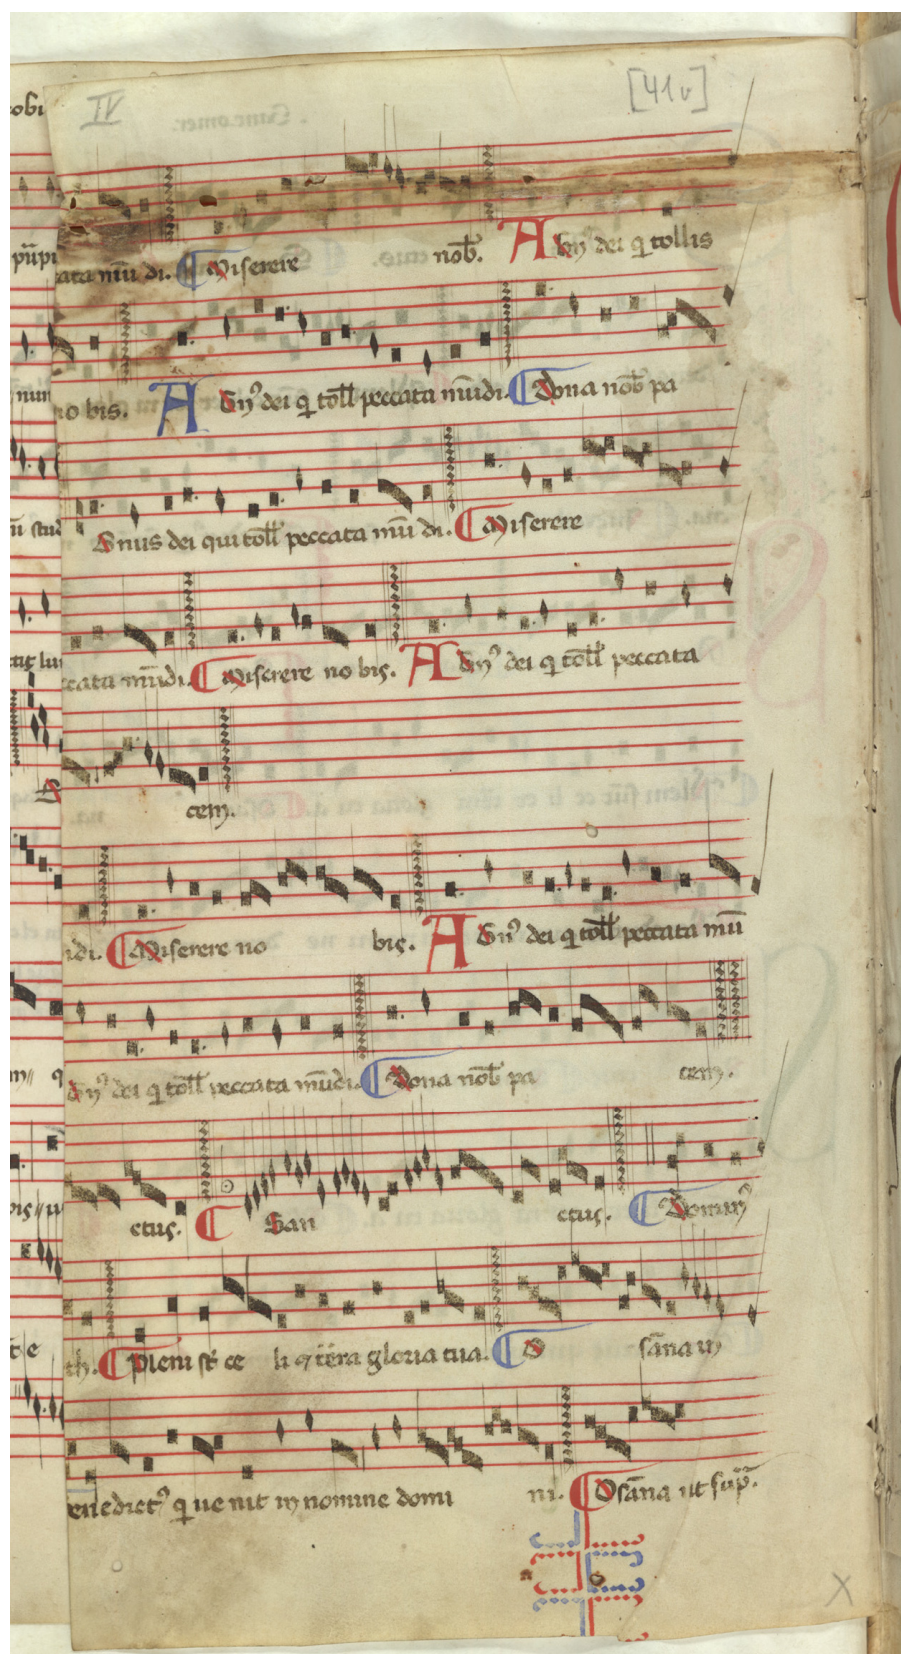 IV [41v]
cobi
ccata mū di. Miserere nob̄. A gnꝰ dei q tollis
no bis. A gnꝰ dei q toll̄ peccata mūdi. Dona nob̄ pa
gnus dei qui toll̄ peccata mū di. Miserere
ccata mūdi. Miserere no bis. A gnꝰ dei q toll̄ peccata
cem.
ndi. Miserere no bis. A gnꝰ dei q toll̄ peccata mū
gnꝰ dei q toll̄ peccata mūdi. Dona nob̄ pa cem.
ctus. San ctus. Dominꝰ
th. Pleni st̄ ce li et t̄ra gloria tua. O sāna in
enedictꝰ q ue nit in nomine domi ni. Osāna ut sup̄.
X